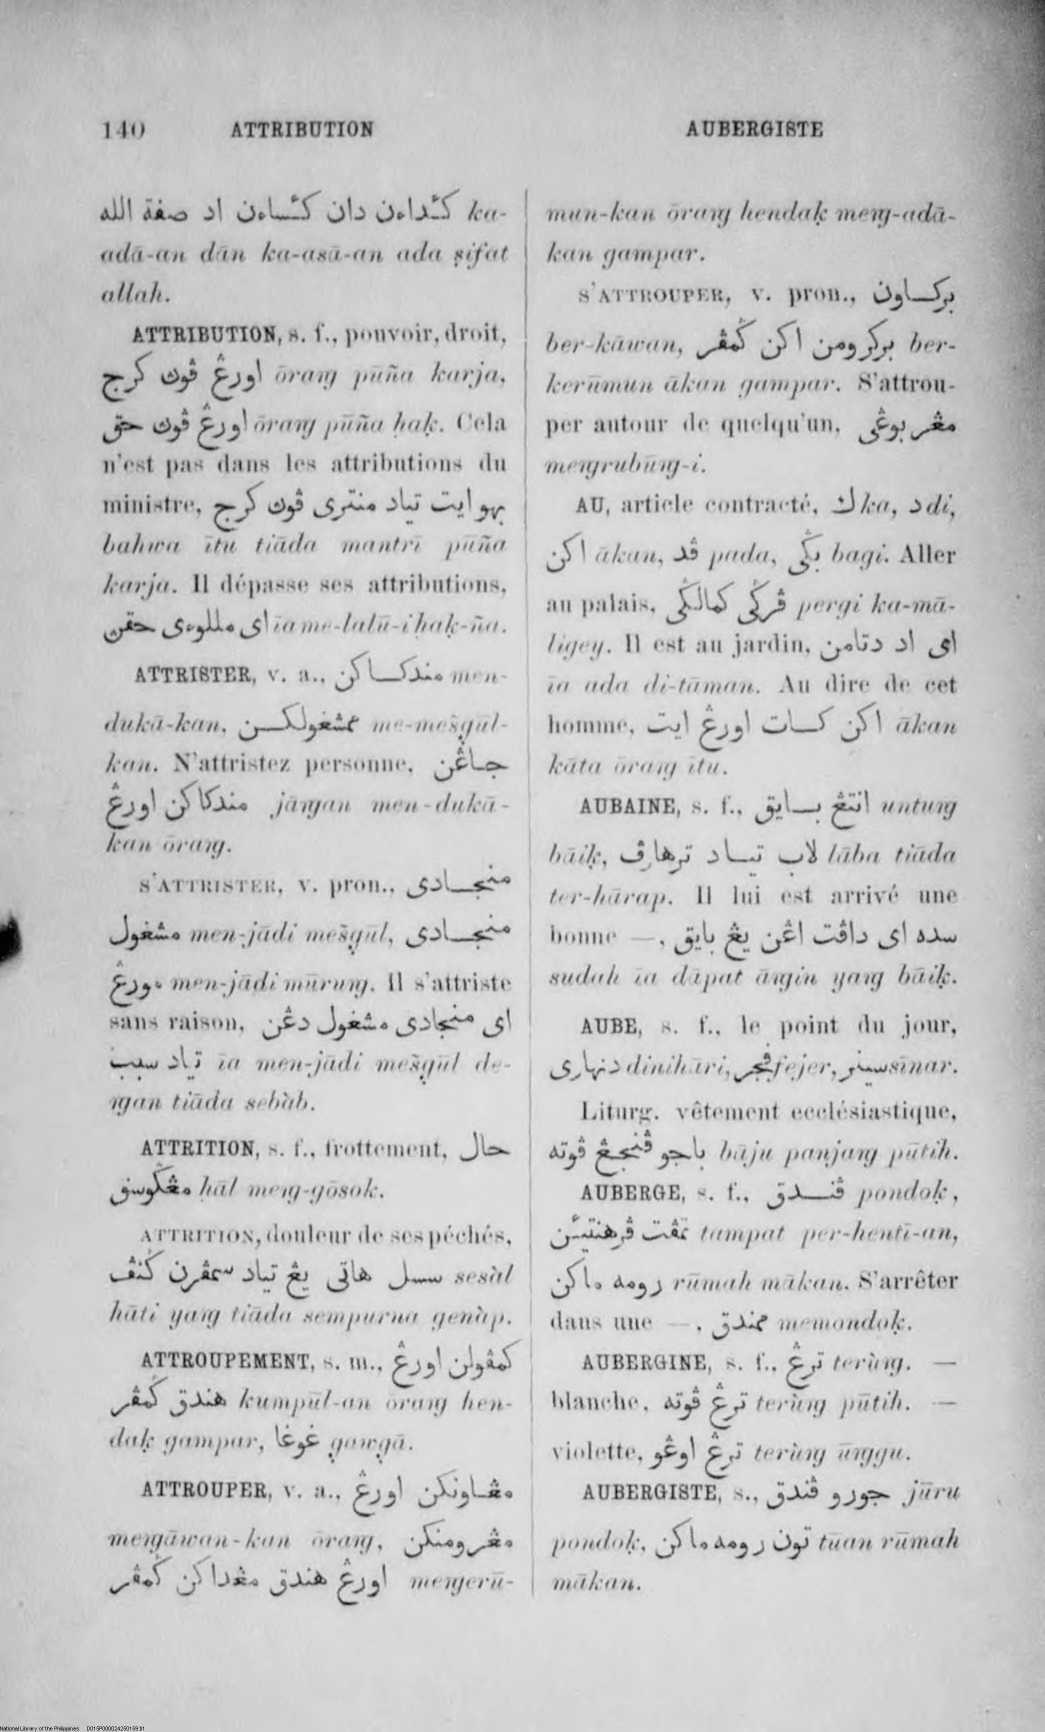 140 ATTRIBUTION AUBERGISTE
كئداءن دان كئساءن اد صفة الله ka-
adā-an dān ka-asā-an ada ṣifat
allah.
ATTRIBUTION, s. f., pouvoir, droit,
اورڠ ڤون كرج ōrang pūña karja,
اورڠ ڤون حق ōrang pūña ḥaḳ. Cela
n'est pas dans les attributions du
ministre, بهو ايت تياد منترى ڤون كرج
bahwa ītu tiāda mantrī pūña
karja. Il dépasse ses attributions,
اى مللوءى حقن īa me-lalū-i ḥaḳ-ña.
ATTRISTER, v. a., مندكاكن men-
dukā-kan, ممشغولكن me-mešgūl-
kan. N'attristez personne, جاڠن
مندكاكن اورڠ jāngan men-dukā-
kan ōrang.
S'ATTRISTER, v. pron., منجادى
مشغول men-jādi mešgūl, منجادى
مورڠ men-jādi mūrung. Il s'attriste
sans raison, اى منجادى مشغول دڠن
تياد سبب īa men-jādi mešgūl de-
ngan tiāda sebàb.
ATTRITION, s. f., frottement, حال
مڠݢوسق hāl meng-gōsok.
ATTRITION, douleur de ses péchés,
سسل هاتى يڠ تياد سمڤرن ݢنڤ sesàl
hāti yang tiāda sempurna genàp.
ATTROUPEMENT, s. m., كمڤولن اورڠ
هندق ݢمڤر kumpūl-an ōrang hen-
daḳ gampar, غوغا gawgā.
ATTROUPER, v. a., مڠاونكن اورڠ
mengāwan-kan ōrang, مڠرومنكن
اورڠ هندق مڠداكن ݢمڤر mengerū-
mun-kan ōrang hendaḳ meng-adā-
kan gampar.
S'ATTROUPER, v. pron., بركاون
ber-kāwan, بركرومن اكن ݢمڤر ber-
kerūmun ākan gampar. S'attrou-
per autour de quelqu'un, مڠربوڠى
mengrubūng-i.
AU, article contracté, ك ka, د di,
اكن ākan, ڤد pada, بݢى bagi. Aller
au palais, ڤرݢى كمالݢى pergi ka-mā-
ligey. Il est au jardin, اى اد دتامن
īa ada di-tāman. Au dire de cet
homme, اكن كات اورڠ ايت ākan
kāta ōrang ītu.
AUBAINE, s. f., انتڠ بايق untung
bāiḳ, لاب تياد ترهارڤ lāba tiāda
ter-hārap. Il lui est arrivé une
bonne —, سده اى داڤت اڠن يڠ بايق
sudah īa dāpat āngin yang bāiḳ.
AUBE, s. f., le point du jour,
دنهارى dinihāri, فجر fejer, سينر sīnar.
Liturg. vêtement ecclésiastique,
باجو ڤنجڠ ڤوته bāju panjang pūtih.
AUBERGE, s. f., ڤندق pondoḳ,
تمڤت ڤرهنتيئن tampat per-henti-an,
رومه ماكن rūmah mākan. S'arrêter
dans une —, ممندق memondoḳ.
AUBERGINE, s. f., ترڠ terùng. —
blanche, ترڠ ڤوته terùng pūtih. —
violette, ترڠ اوڠو terùng ūnggu.
AUBERGISTE, s., جورو ڤندق jūru
pondoḳ, تون رومه ماكن tūan rūmah
mākan.
National Library of the Philippines